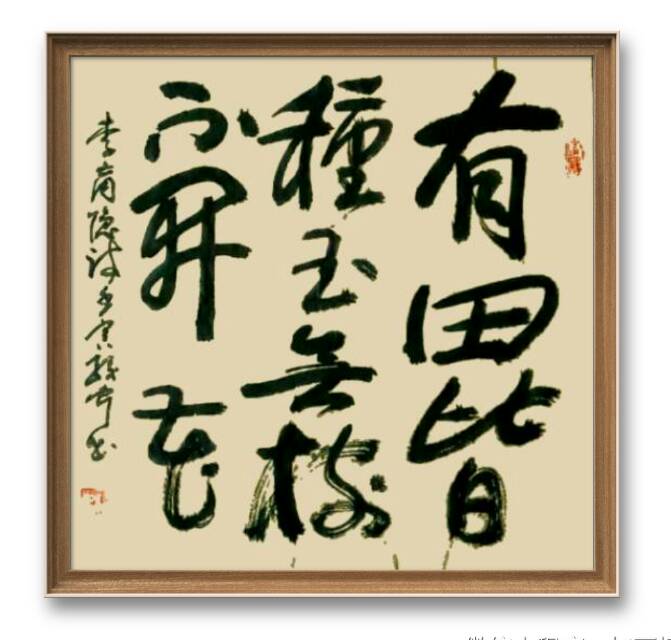 有田皆
種玉無樹
不開花
李商隐诗
书